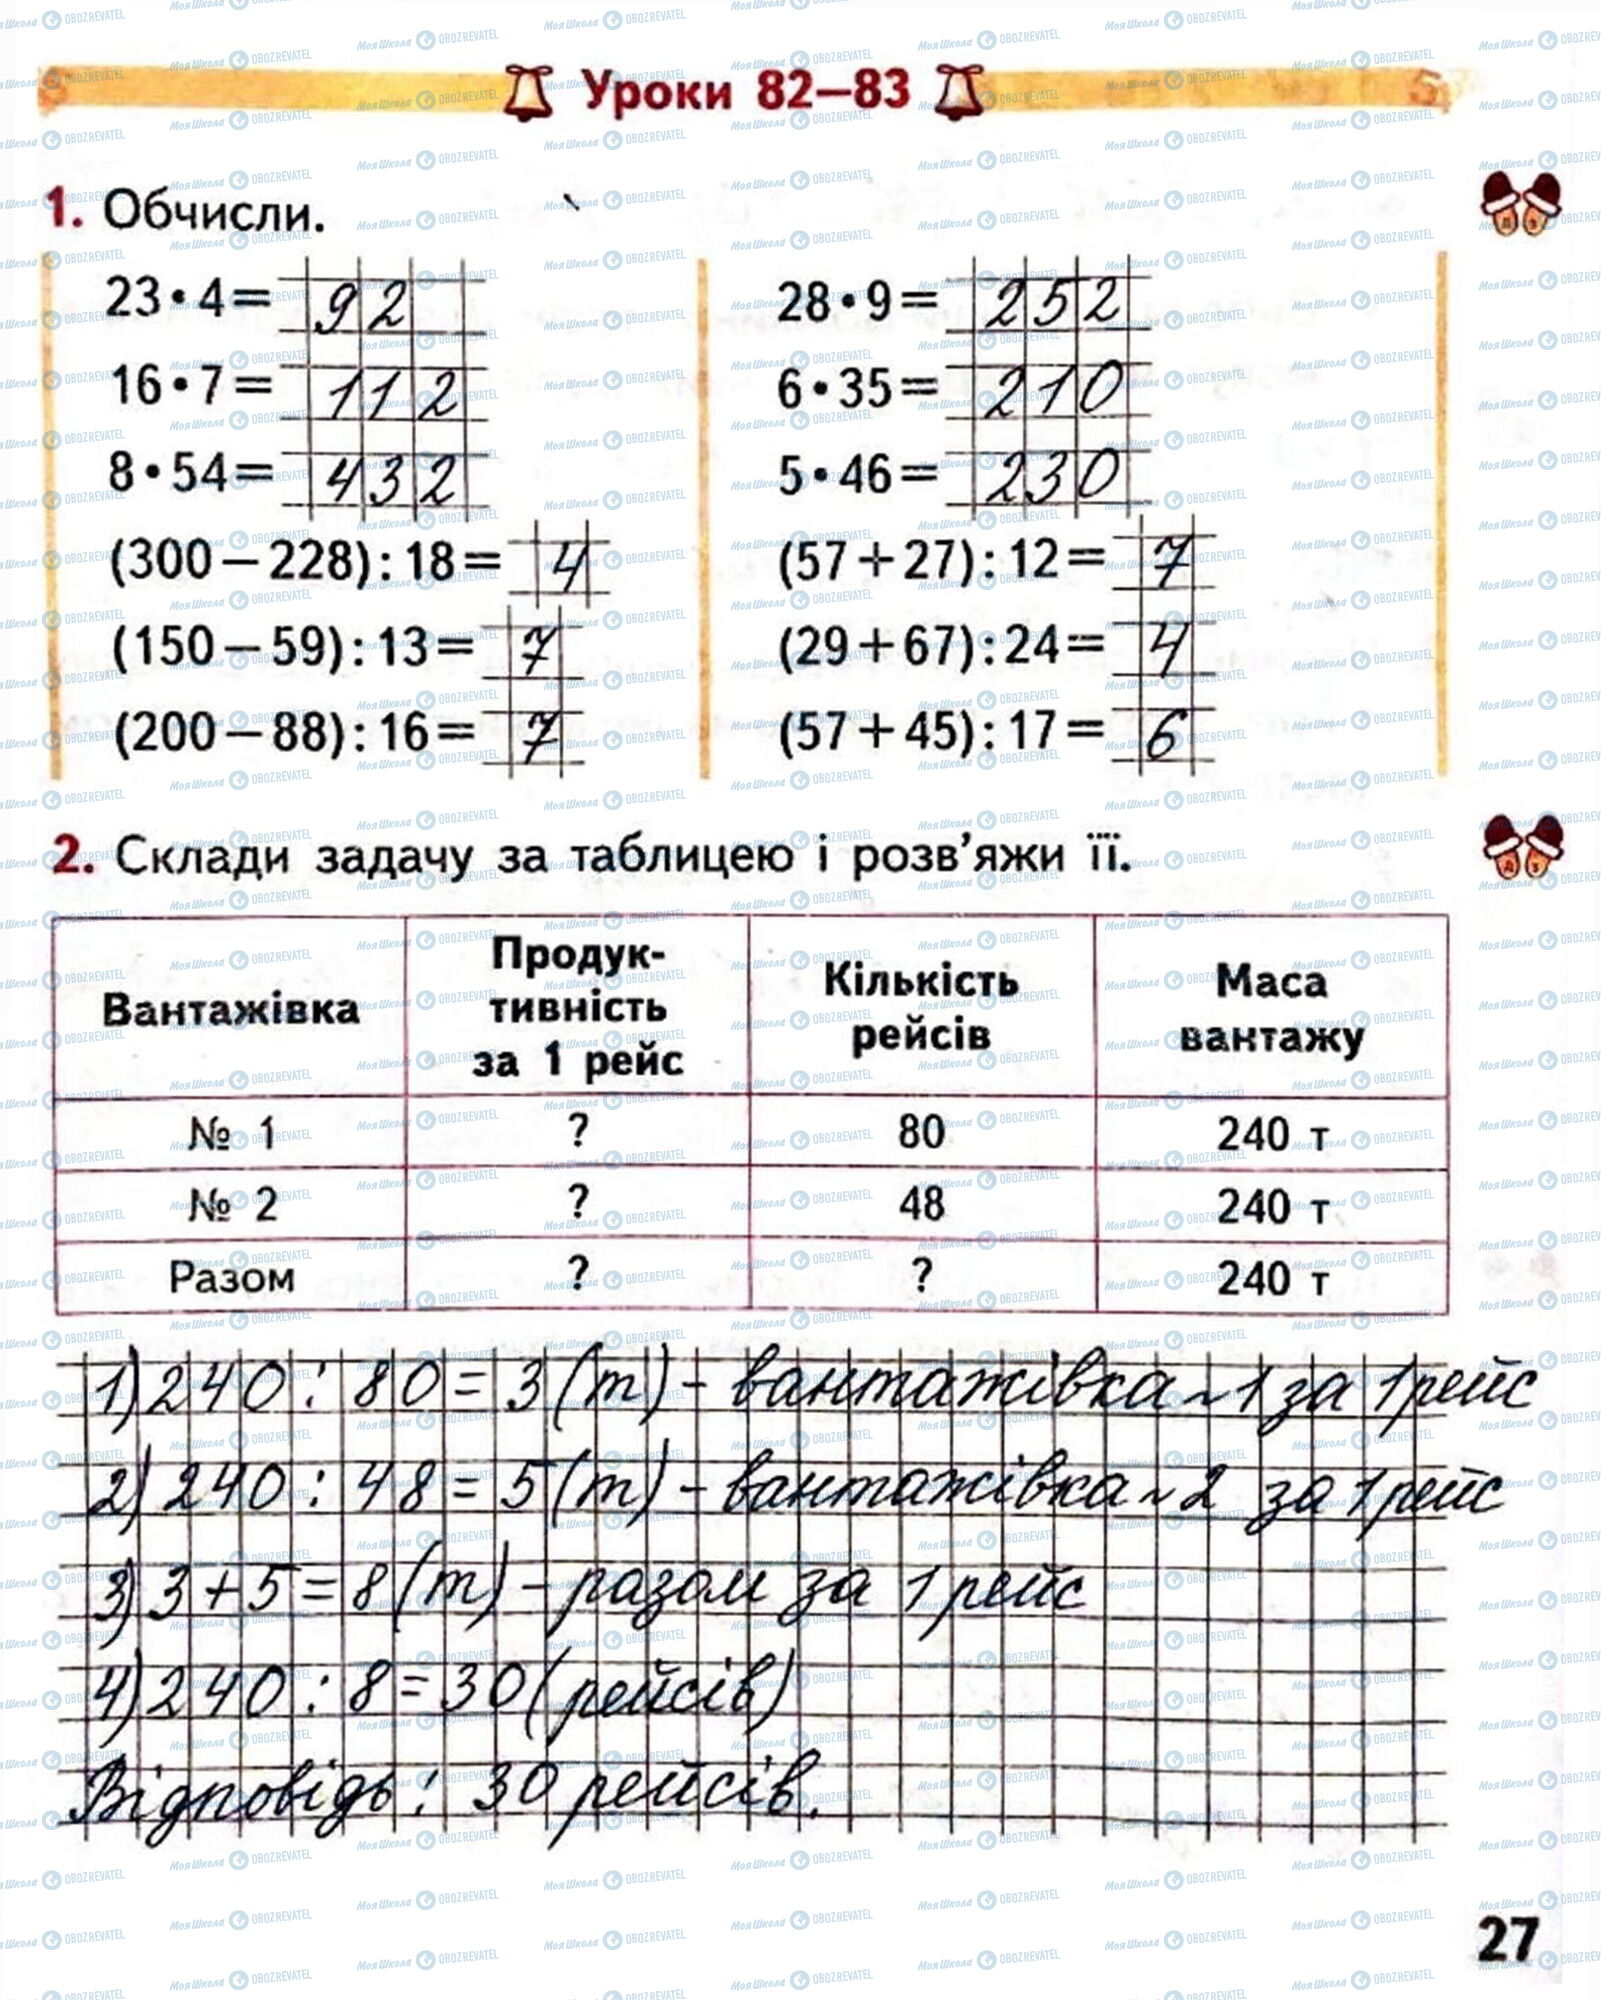 Уроки 82–83
1. Обчисли.
23•4= 92
28•9= 252
16•7= 112
6•35= 210
8•54= 432
5•46= 230
(300−228):18= 4
(57+27):12= 7
(150−59):13= 7
(29+67):24= 4
(200−88):16= 7
(57+45):17= 6
2. Склади задачу за таблицею і розв’яжи її.
Вантажівка
Продук-
тивність
за 1 рейс
Кількість
рейсів
Маса
вантажу
№ 1 ? 80 240 т
№ 2 ? 48 240 т
Разом ? ? 240 т
1) 240 : 80 = 3 (т) - вантажівка ~ 1 за 1 рейс
2) 240 : 48 = 5 (т) - вантажівка ~ 2 за 1 рейс
3) 3 + 5 = 8 (т) - разом за 1 рейс
4) 240 : 8 = 30 (рейсів)
Відповідь: 30 рейсів.
27
МояШкола OBOZREVATEL